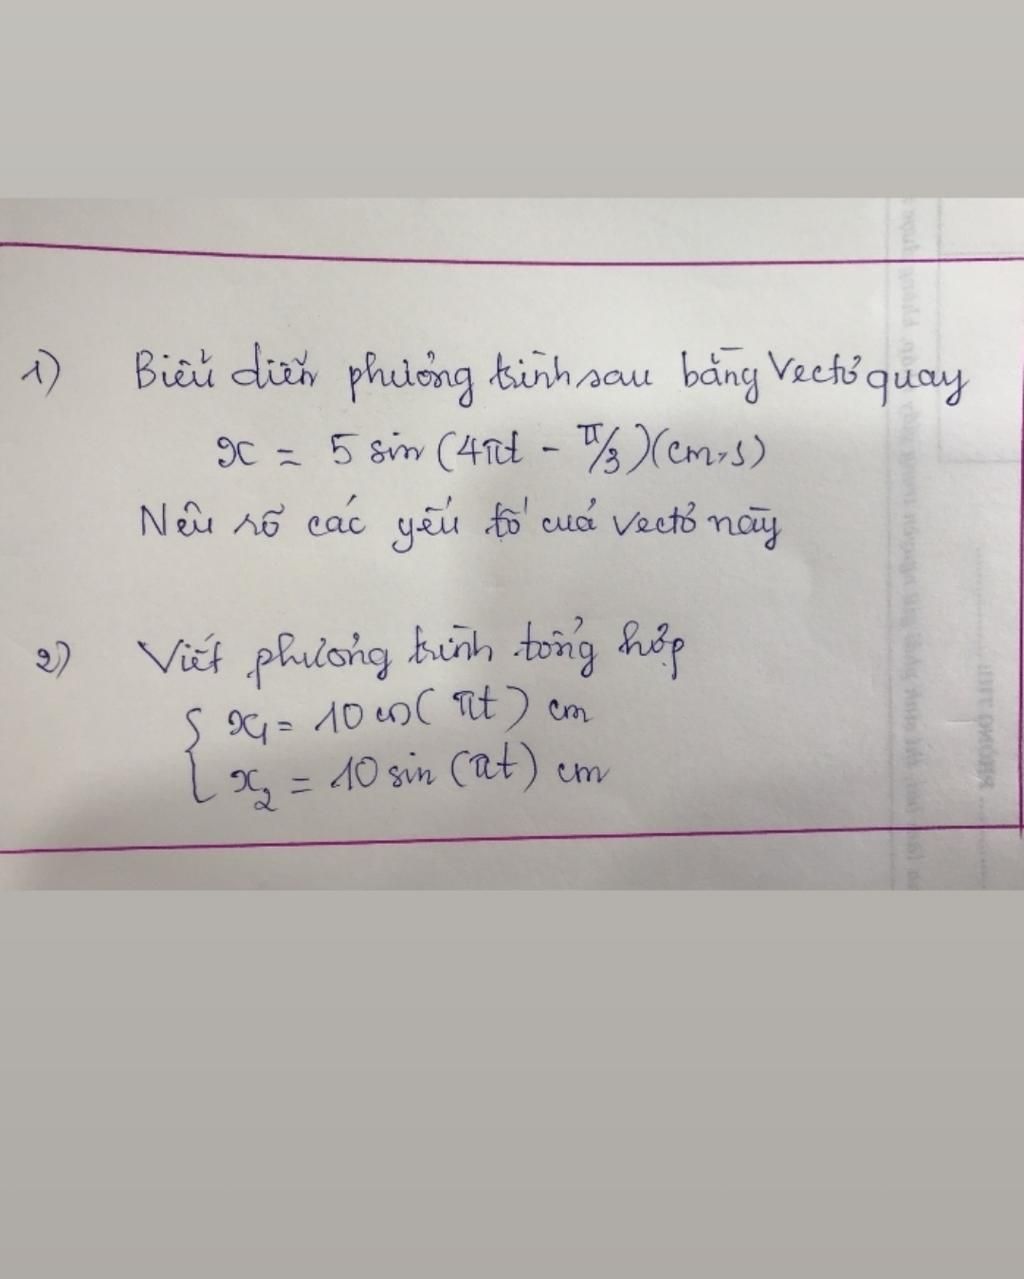 1) Biểu diễn phương trình sau bằng Vectơ quay
x = 5 sin (4πt - π/3)(cm,s)
Nêu rõ các yếu tố của vectơ này
2) Viết phương trình tổng hợp
{ x₁ = 10 cos( πt ) cm
x₂ = 10 sin (πt) cm